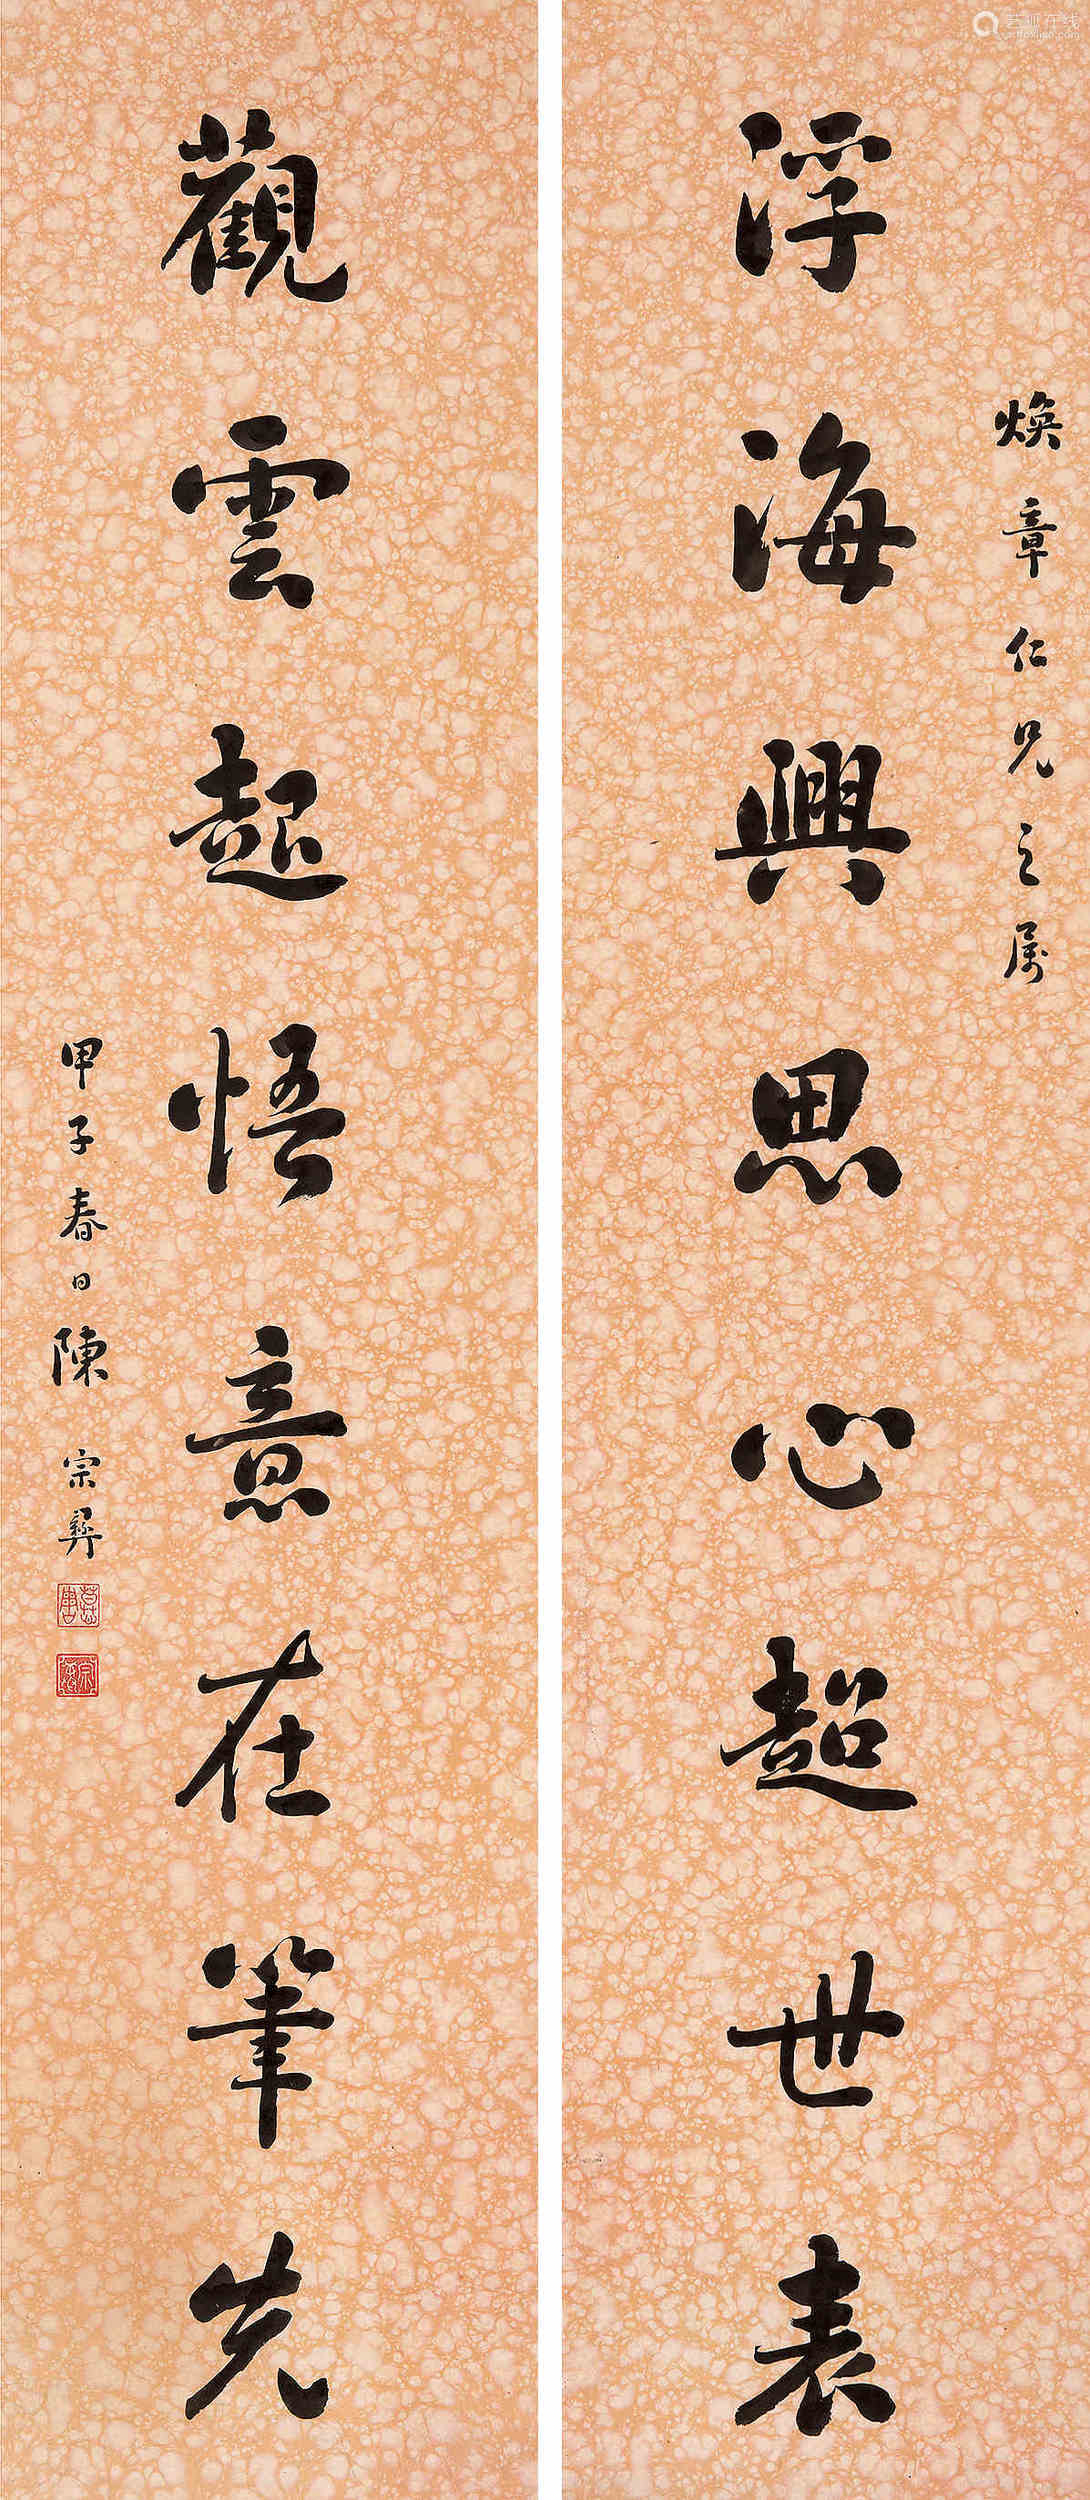 煥章仁兄之属
浮海興思心超世表
觀雲起悟意在筆先
甲子春日陳宗彝
慕唐